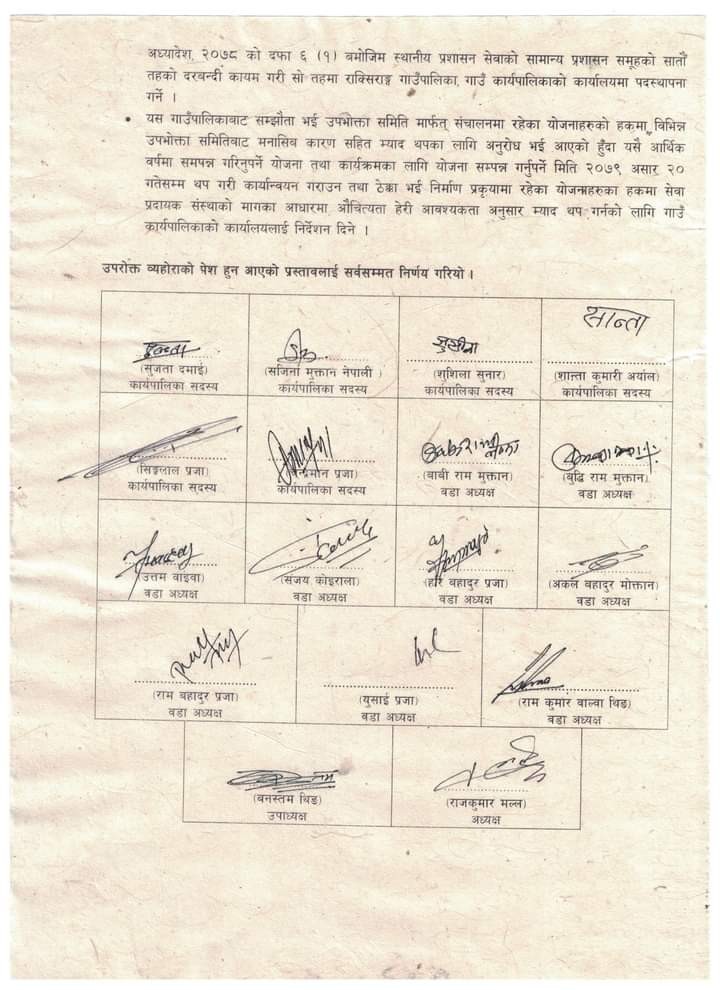 अध्यादेश, २०७८ को दफा ६ (१) बमोजिम स्थानीय प्रशासन सेवाको सामान्य प्रशासन समूहको सातौँ
तहको दरबन्दी कायम गरी सो तहमा राक्सिराङ्ग गाउँपालिका, गाउँ कार्यपालिकाको कार्यालयमा पदस्थापना
गर्ने ।
• यस गाउँपालिकाबाट सम्झौता भई उपभोक्ता समिति मार्फत् संचालनमा रहेका योजनाहरुको हकमा विभिन्न
उपभोक्ता समितिबाट मनासिव कारण सहित म्याद थपका लागि अनुरोध भई आएको हुँदा यसै आर्थिक
वर्षमा समपन्न गरिनुपर्ने योजना तथा कार्यक्रमका लागि योजना सम्पन्न गर्नुपर्ने मिति २०७९ असार २०
गतेसम्म थप गरी कार्यान्वयन गराउन तथा ठेक्का भई निर्माण प्रकृयामा रहेका योजनाहरुका हकमा सेवा
प्रदायक संस्थाको मागका आधारमा औचित्यता हेरी आवश्यकता अनुसार म्याद थप गर्नको लागि गाउँ
कार्यपालिकाको कार्यालयलाई निर्देशन दिने ।
उपरोक्त व्यहोराको पेश हुन आएको प्रस्तावलाई सर्वसम्मत निर्णय गरियो ।
सान्ता
(सुजता दमाई) (सजिना मुक्तान नेपाली ) (शुशिला सुनार) (शान्ता कुमारी अर्याल)
कार्यपालिका सदस्य कार्यपालिका सदस्य कार्यपालिका सदस्य कार्यपालिका सदस्य
(सिङ्गलाल प्रजा) प्रजा) (बाबी राम मुक्तान) (बुद्धि राम मुक्तान)
कार्यपालिका सदस्य कार्यपालिका सदस्य वडा अध्यक्ष वडा अध्यक्ष
(उत्तम वाइवा) (संजय कोइराला) (हरि बहादुर प्रजा) (अकल बहादुर मोक्तान)
वडा अध्यक्ष वडा अध्यक्ष वडा अध्यक्ष वडा अध्यक्ष
(राम बहादुर प्रजा) (युसाई प्रजा) (राम कुमार वाल्वा थिङ)
वडा अध्यक्ष वडा अध्यक्ष वडा अध्यक्ष
(बनस्तम थिङ) (राजकुमार मल्ल)
उपाध्यक्ष अध्यक्ष